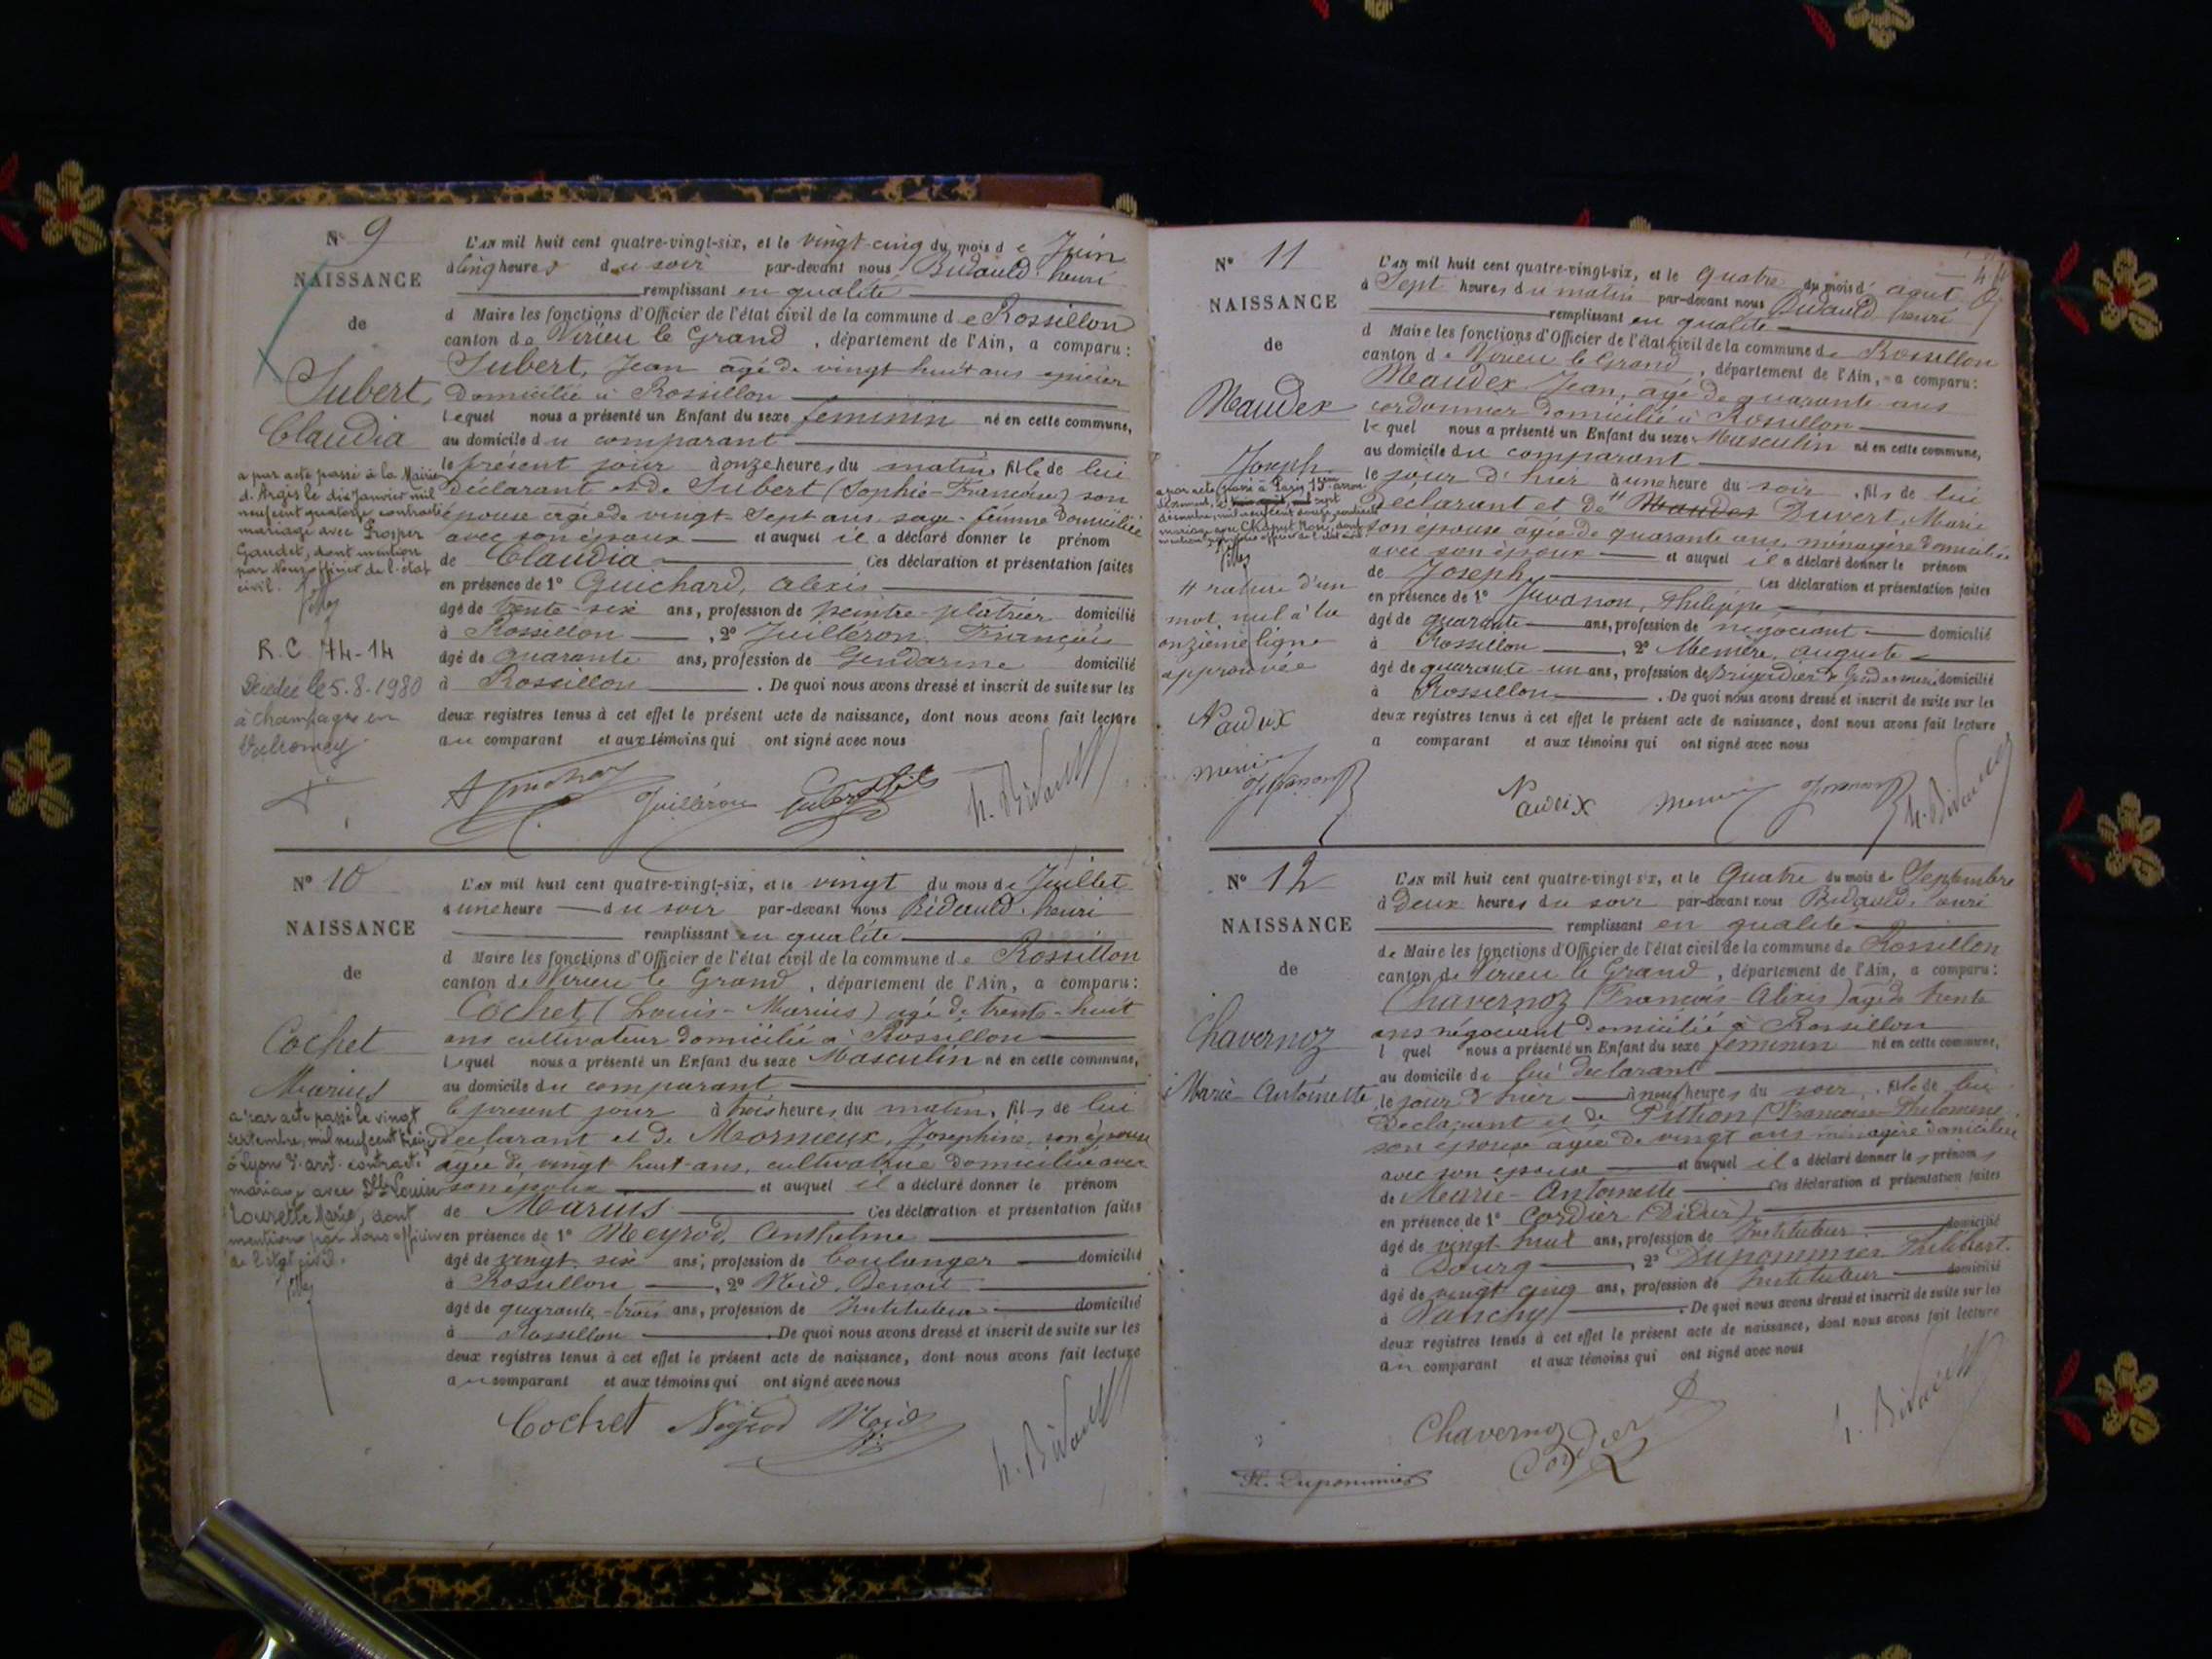 N° 9
NAISSANCE
de
Jubert
Claudia
a par acte passé à la Mairie
d'Argis le dix Janvier mil
neuf cent quatorze contracté
mariage avec Prosper
Gaudet, dont mention
par Nous officier de l'état
civil.
R.C. 74-14
Décédée le 5.8.1980
à Champagne en
Valromey.
L'AN mil huit cent quatre-vingt-six, et le vingt-cinq du mois de Juin
à cinq heures du soir par-devant nous Bidauld henri
remplissant en qualité
d Maire les fonctions d'Officier de l'état civil de la commune de Rossillon
canton de Virieu le Grand, département de l'Ain, a comparu:
Jubert, Jean âgé de vingt huit ans épicier
domicilié à Rossillon
lequel nous a présenté un Enfant du sexe feminin né en cette commune,
au domicile du comparant
le présent jour à onze heures du matin fille de lui
déclarant et de Jubert (Sophie-Francine) son
épouse âgée de vingt-sept ans sage-femme domiciliée
avec son époux et auquel il a déclaré donner le prénom
de Claudia Ces déclaration et présentation faites
en présence de 1° Guichard, alexis
âgé de trente-six ans, profession de peintre-plâtrier domicilié
à Rossillon, 2° Juilléron, François
âgé de quarante ans, profession de Gendarme domicilié
à Rossillon. De quoi nous avons dressé et inscrit de suite sur les
deux registres tenus à cet effet le présent acte de naissance, dont nous avons fait lecture
au comparant et aux témoins qui ont signé avec nous
Juilléron H. Bidauld
N° 10
NAISSANCE
de
Cochet
Marius
a par acte passé le vingt
septembre, mil neuf cent treize
à Lyon 3e arrt. contracté
mariage avec Dlle Louise
Lourette Marie, dont
mention par Nous officier
de l'état civil.
L'AN mil huit cent quatre-vingt-six, et le vingt du mois de Juillet
à une heure du soir par-devant nous Bidauld, henri
remplissant en qualité
d Maire les fonctions d'Officier de l'état civil de la commune de Rossillon
canton de Virieu le Grand, département de l'Ain, a comparu:
Cochet (Louis-Marius) âgé de trente-huit
ans cultivateur domicilié à Rossillon
lequel nous a présenté un Enfant du sexe Masculin né en cette commune,
au domicile du comparant
le present jour à trois heures du matin, fils de lui
déclarant et de Mornieux, Josephine, son épouse
âgée de vingt huit ans, cultivatrice domiciliée avec
son époux et auquel il a déclaré donner le prénom
de Marius Ces déclaration et présentation faites
en présence de 1° Meyrod, Anthelme
âgé de vingt six ans, profession de boulanger domicilié
à Rossillon, 2° Noid, Benoit
âgé de quarante-trois ans, profession de Instituteur domicilié
à Rossillon. De quoi nous avons dressé et inscrit de suite sur les
deux registres tenus à cet effet le présent acte de naissance, dont nous avons fait lecture
au comparant et aux témoins qui ont signé avec nous
Cochet Neyrod Noid H. Bidauld
N° 11
NAISSANCE
de
Naudex
Joseph
a par acte passé à Paris 15eme arron-
mariage avec Chaput Rose, dont
mention par Nous officier de l'état civil.
rature d'un
mot nul à la
onzième ligne
approuvée
Naudex
L'AN mil huit cent quatre-vingt-six, et le quatre du mois d'août
à Sept heures du matin par-devant nous Bidauld henri
remplissant en qualité
d Maire les fonctions d'Officier de l'état civil de la commune de Rossillon
canton de Virieu le Grand, département de l'Ain, a comparu:
Naudex Jean, âgé de quarante ans
cordonnier domicilié à Rossillon
lequel nous a présenté un Enfant du sexe Masculin né en cette commune,
au domicile du comparant
le jour d'hier à une heure du soir, fils de lui
declarant et de Naudex Duvert, Marie
son épouse âgée de quarante ans, ménagère domiciliée
avec son époux et auquel il a déclaré donner le prénom
de Joseph Ces déclaration et présentation faites
en présence de 1° Juvanon, Philippe
âgé de quarante ans, profession de négociant domicilié
à Rossillon, 2° Mermère, auguste
âgé de quarante-un ans, profession de Brigadier de gendarmerie domicilié
à Rossillon. De quoi nous avons dressé et inscrit de suite sur les
deux registres tenus à cet effet le présent acte de naissance, dont nous avons fait lecture
a comparant et aux témoins qui ont signé avec nous
Naudex H. Bidauld
N° 12
NAISSANCE
de
Chavernoz
Marie-Antoinette
L'AN mil huit cent quatre-vingt-six, et le Quatre du mois de Septembre
à deux heures du soir par-devant nous Bidauld, henri
remplissant en qualité
de Maire les fonctions d'Officier de l'état civil de la commune de Rossillon
canton de Virieu le Grand, département de l'Ain, a comparu:
Chavernoz (François-Alexis) âgé de trente
ans négociant domicilié à Rossillon
l quel nous a présenté un Enfant du sexe feminin né en cette commune,
au domicile de lui déclarant
le jour d'hier à neuf heures du soir, fille de lui
déclarant et de Pithon (Françoise-Philomène
son épouse âgée de vingt ans ménagère domiciliée
avec son époux et auquel il a déclaré donner les prénoms
de Marie-Antoinette Ces déclaration et présentation faites
en présence de 1° Cordier (Didier)
âgé de vingt-huit ans, profession de Instituteur domicilié
à Bourg, 2° Dupommier Philibert
âgé de vingt cinq ans, profession de Instituteur domicilié
à Vanchy. De quoi nous avons dressé et inscrit de suite sur les
deux registres tenus à cet effet le présent acte de naissance, dont nous avons fait lecture
au comparant et aux témoins qui ont signé avec nous
Chavernoz Cordier H. Bidauld
Ph. Dupommier